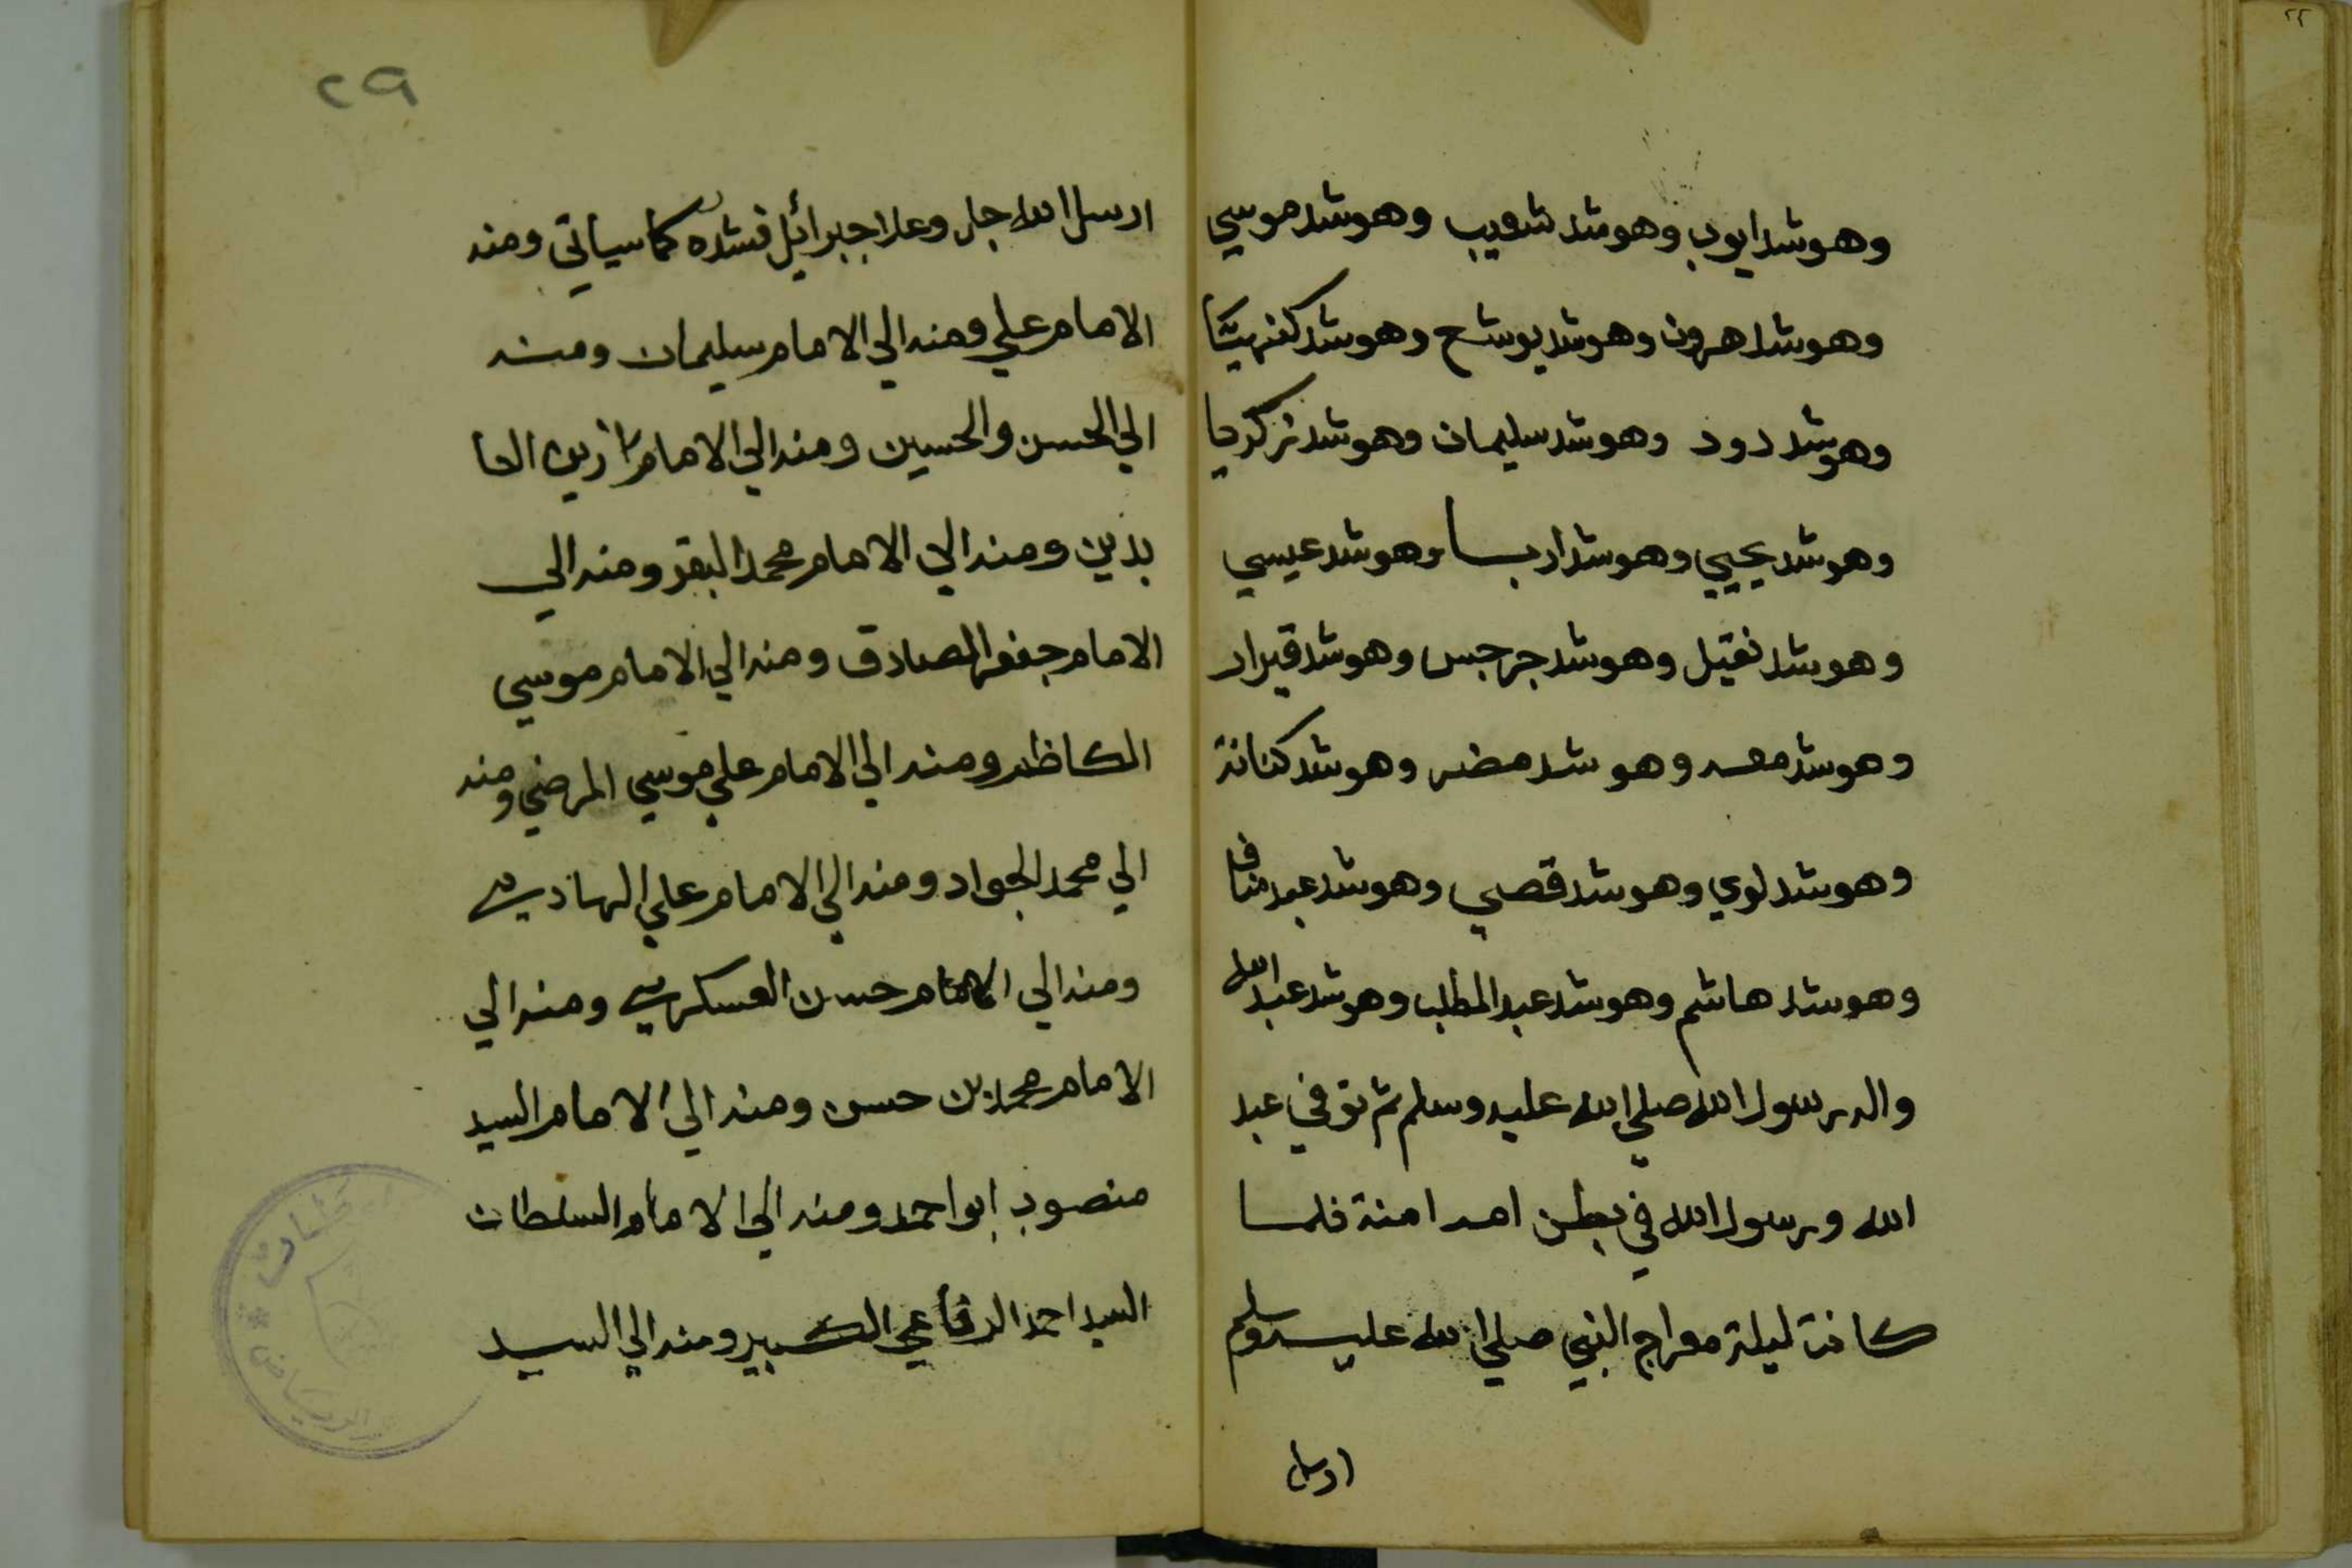 وهو شد ايوب وهو شد شعيب وهو شد موسي
وهو شد هرون وهو شد يوشح وهو شد
وهو شد دود وهو شد سليمان وهو شد زكريا
وهو شد يحيي وهو شد اربسا وهو شد عيسي
وهو شد نفيل وهو شد جرجس وهو شد قيرار
وهو شد معد وهو شد مضر وهو شد كنانة
وهو شد لوي وهو شد قصي وهو شد عبد مناف
وهو شد هاشم وهو شد عبد المطلب وهو شد عبد الله
والد رسول الله صلي الله عليه وسلم ثم توفي عبد
الله ورسول الله في بطن امه امنة فلما
كانة ليلة معراج النبي صلي الله عليه وسلم
ارسل
٢٩
ارسل الله جل وعلا جبرائيل فشده كما سياتي ومنه
الامام علي ومنه الي الامام سليمان ومنه
الي الحسن والحسين ومنه الي الامام زين العا
بدين ومنه الي الامام محمد البقر ومنه الي
الامام جعفر الصادق ومنه الي الامام موسي
الكاظم ومنه الي الامام علي موسي المرضي ومنه
الي محمد الجواد ومنه الي الامام علي الهادي
ومنه الي الامام حسن العسكري ومنه الي
الامام محمد بن حسن ومنه الي الامام السيد
منصوب ابو احمد ومنه الي الامام السلطان
السيد احمد الرفاعي الكبير ومنه الي السيد